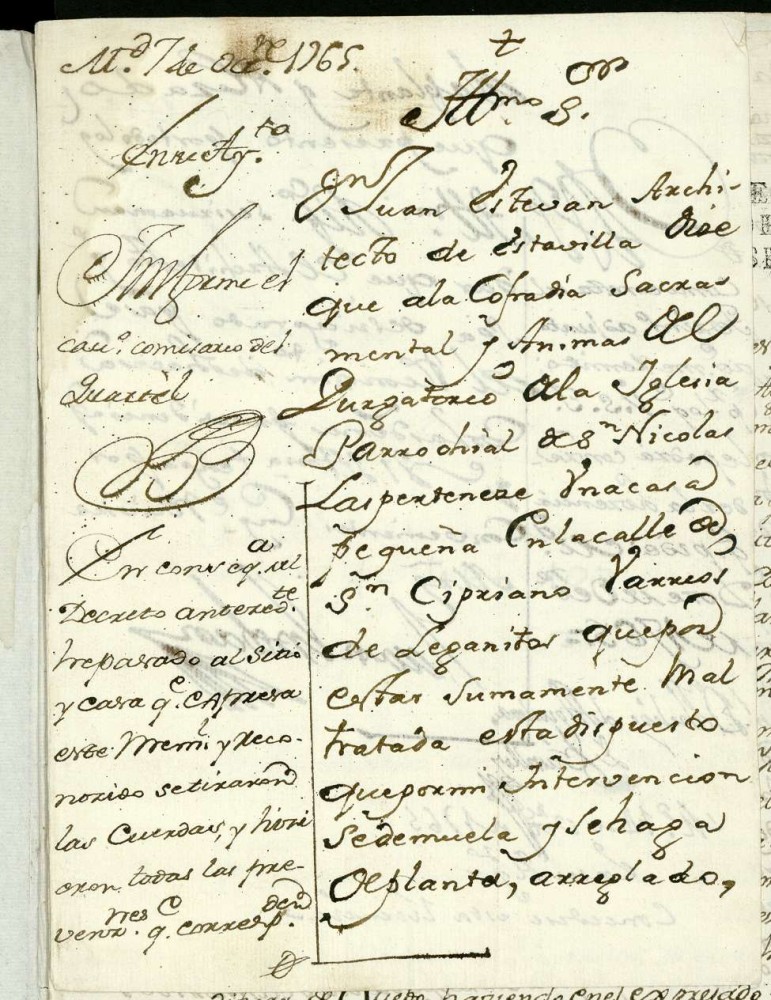 M.d 7 de Oct.re 1765.
En el Ay.to
Informe el
cav.o comisario del
Quartel
En conseq.a del
Decreto anteced.te
he pasado al Sitio
y casa q.e expresa
este Mem.l y reco-
nozido se tiraron
las Cuerdas, y hizi
eron todas las pre-
venz.nes q.e corresp.den
+
Ill.mo S.or
Juan Estevan Archi-
tecto de esta villa dize
que a la Cofradia Sacra-
mental y Animas del
Purgatorio de la Iglesia
Parrochial de S.n Nicolas
Las pertenece Una casa
pequeña En la calle de
S.n Cipriano Varrios
de Leganitos que por
estar sumamente Mal
tratada esta dispuesto
que por mi Intervencion
se demuela y se haga
de planta, arreglado,